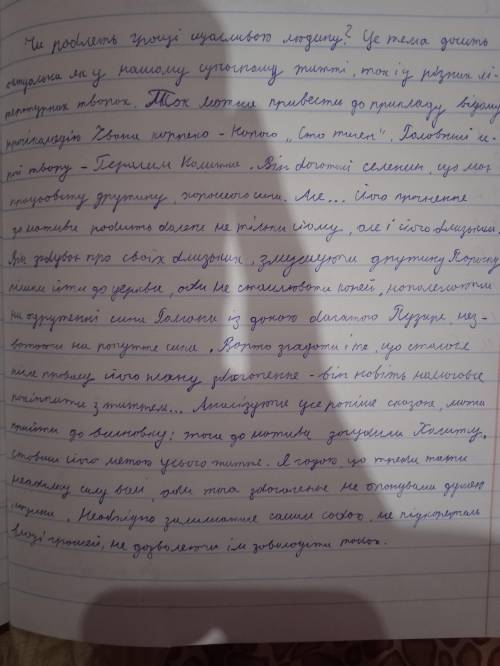 Чи роблять гроші щасливою людину? Це тема досить
актуальна як у нашому сучасному житті, так і у різних лі-
тературних творах. Так можна привести до прикладу відому
трагікомедію Івана Карпенко-Карого "Сто тисяч". Головний ге-
рой твору - Герасим Калитка. Він багатий селянин, що має
працьовиту дружину, хорошого сина. Але... його прагнення
до наживи робить боляче не тільки йому, але і його близьким.
Він забуває про своїх близьких, змушуючи дружину Параску
пішки йти до церкви, аби не стомлювати коней, наполягаючи
на одруженні сина Романа із донькою багатого Пузиря, нез-
важаючи на почуття сина. Варто згадати і те, що сталося
після провалу його плану збагачення - він навіть намагався
покінчити з життям... Аналізуючи усе раніше сказане, можна
прийти до висновку: жага до наживи Калитку,
ставши його метою усього життя. Я гадаю, що треба мати
неабияку силу волі, аби жага збагачення не опанувала думки
людини. Необхідно залишатися самим собою, не підкорятись
владі грошей, не дозволяючи їм заволодіти тобою.